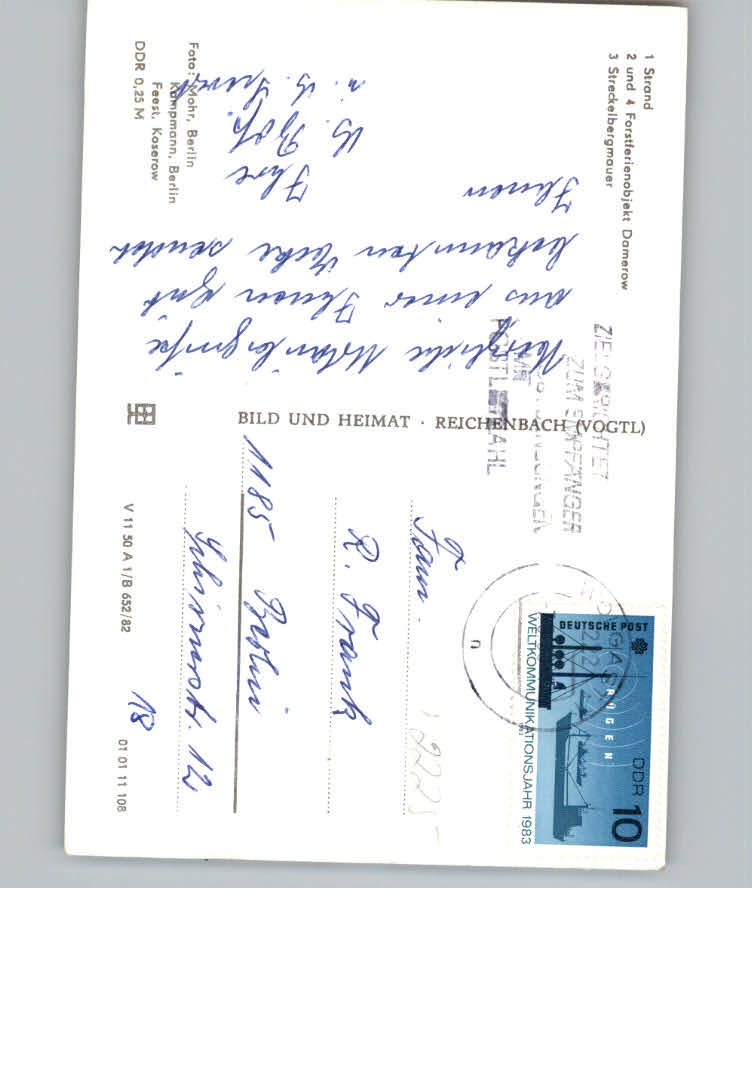 1 Strand
2 und 4 Forstferienobjekt Damerow
3 Streckelbergmauer
Herzliche Urlaubsgrüße
aus einer Ihnen gut
bekannten Ecke senden
Ihnen
Ihre
u.
Foto: Mohr, Berlin
Kampmann, Berlin
Feest, Koserow
DDR 0,25 M
BILD UND HEIMAT · REICHENBACH (VOGTL)
V 11 50 A 1/B 652/82
01 01 11 108
ZUM EMPFÄNGER
MIT
POSTLEITZAHL
WOLGAST
DEUTSCHE POST
RÜGEN
DDR
10
WELTKOMMUNIKATIONSJAHR 1983
Fam.
R. Frank
1185 Berlin
12
18